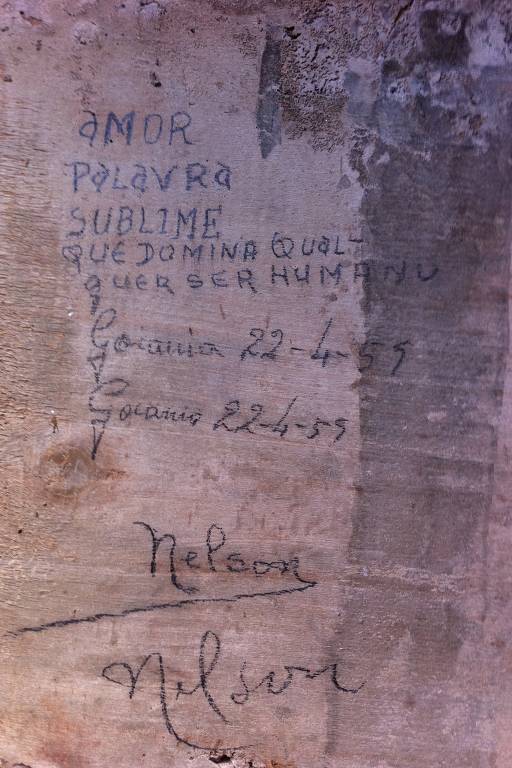 AMOR
PALAVRA
SUBLIME
QUE DOMINA QUAL-
QUER SER HUMANU
Goiania 22-4-59
Goiania 22-4-59
Nelson
Nelson